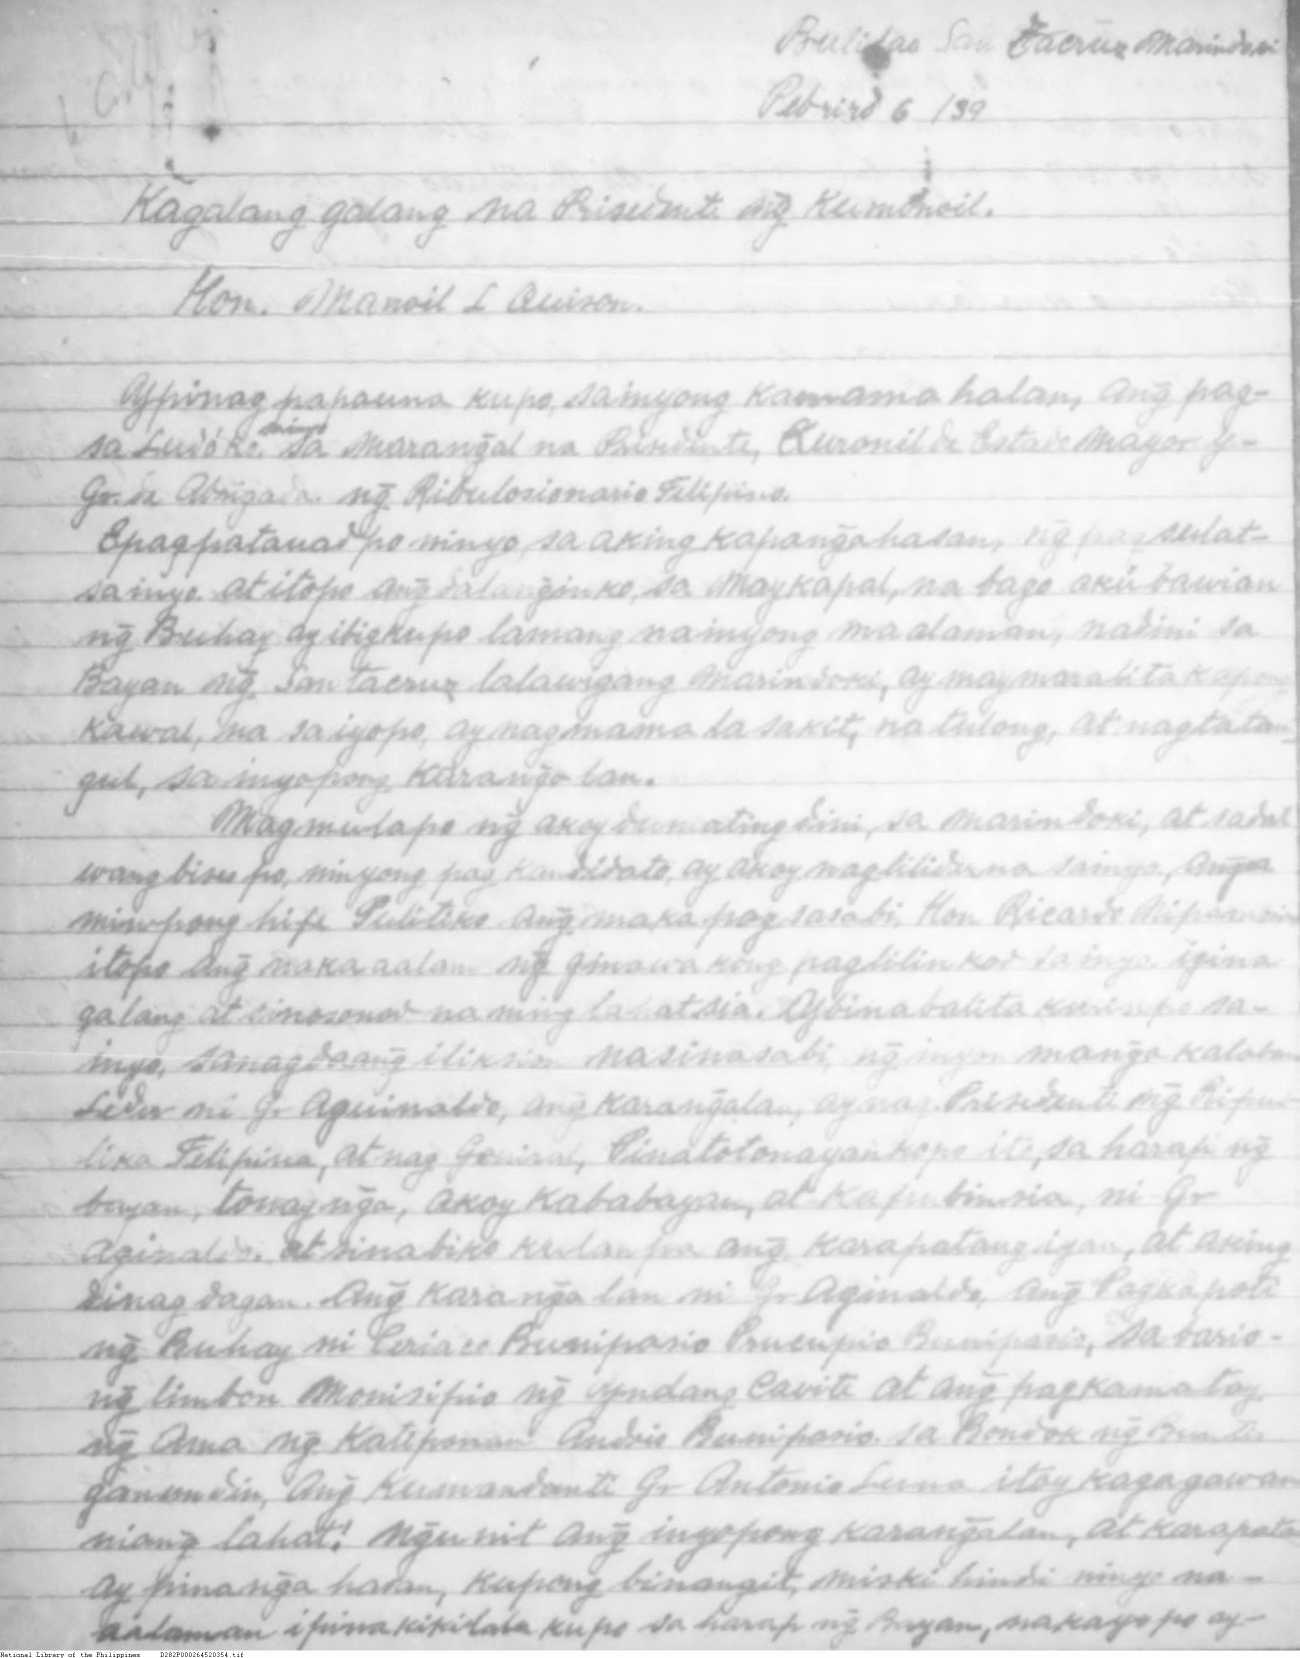 Bulidao San Tacruz Marindoki
Pebriro 6 /39
Kagalang galang na Prisedente ng̃ Kumonoil.
Hon. Manoil L Quison.
Aypinag papauna kupo, sainyong kamama halan, ang̃ pag-
sa Ludoko sainyo sa marang̃al na Prisidente, Kuronil de Estado Mayor y-
Gr. de Abrigada. ng̃ Ribulosionario Filipino.
Epagpatauad po ninyo, sa aking kapang̃ahasan, ng̃ pag sulat-
sainyo. at itopo ang̃ dalang̃inko, sa Maykapal, na bago akü bawian
ng̃ Buhay ay ibigkupo lamang nainyong maalaman, nadini sa
Bayan ng̃ San Tacruz lalawigang Marindoki, ay maymarabita kapong
kawal, na sa iyopo, ay nagmama la sakit, na tulong, at nagtatan-
gul, sa inyopong karang̃a lan.
Magmulapo ng̃ akoy dumating dini, sa Marindoki, at sadal
wang bises po, ninyong pag kandidato, ay akoy naglilider na sainyo, Ang̃a
minpong hife Pulitiko ang̃ maka pag sasabi, Hon Ricardo
itopo ang̃ naka aalam ng̃ ginawa kong paglilin kod sainyo. igina
galang at sinosonod na ming lahat sia. Aybinabalita kurin po sa-
inyo, sanagdaang̃ iliksion nasinasabi ng̃ inyon mang̃a kalaban
Lider ni Gr Aguinaldo, ang̃ karang̃alan, ay nag Presidente ng̃ Ripub-
lika Filipina, at nag Geniral, Pinatotonayan kopo ito, sa harap ng̃
bayan, tonay ng̃a, akoy kababayan, at kapubinsia, ni Gr
Aginaldo. at sinabiko kulanpa ang̃ karapatang iyan, at aking
dinag dagan. Ang̃ kara ng̃a lan ni Gr Aginaldo, ang̃ Pagka poti
ng̃ Buhay ni Ceriaco Bunipasio Prucupio Bunipasio, sa bario-
ng̃ limbon Monisipio ng̃ yndang Cavite at ang̃ pagkamatay
ng̃ Ama ng̃ Kateponan Andris Bunipasio. sa Bondok ng̃
ganundin, Ang̃ Kumandanti Gr Antonio Luna itoy kagagawan
niang̃ lahat! Ng̃unit ang̃ inyopong karang̃alan, at karapata
ay pinang̃a hasan, kupong binangit, miski hindi ninyo na-
aalaman ipina kikilala kupo sa harap ng̃ Bayan, nakayo po ay-
National Library of the Philippines D282P000264520354.tif